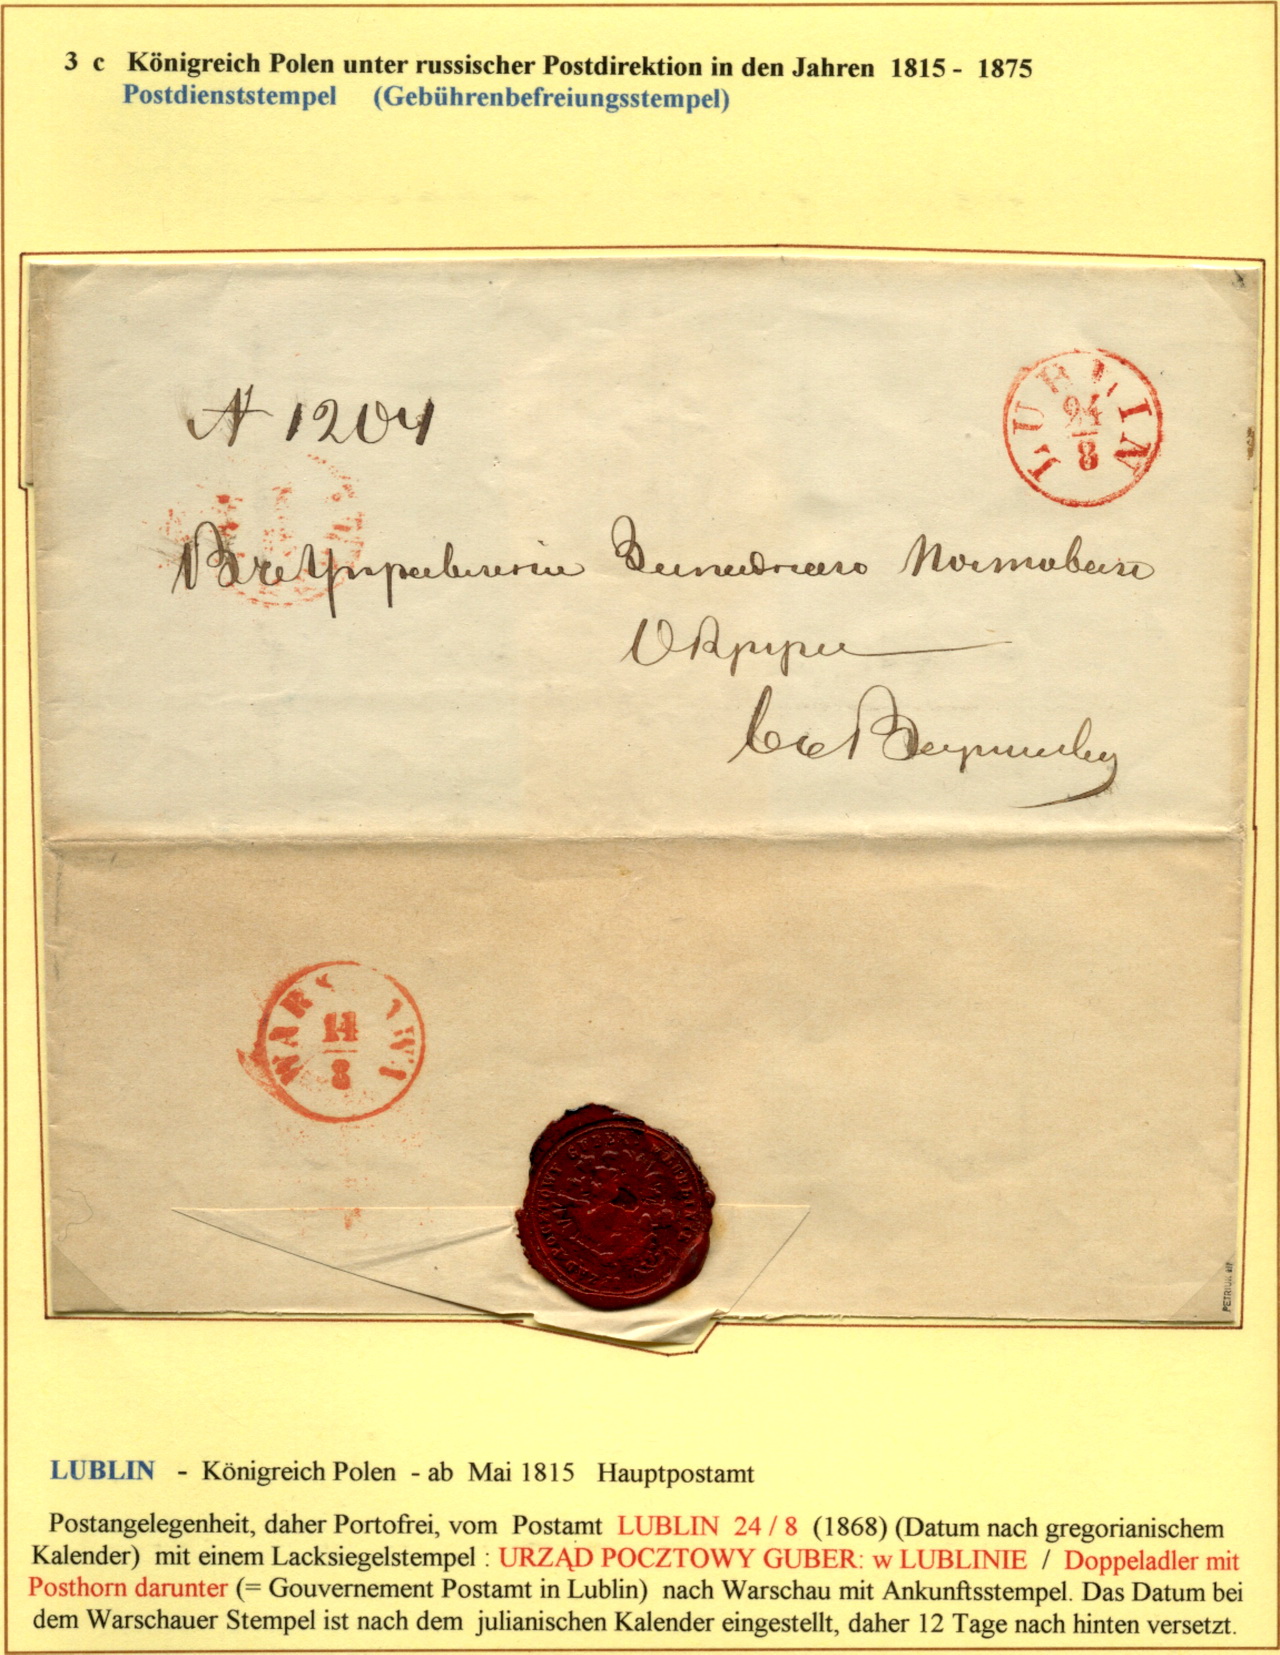 3 c Königreich Polen unter russischer Postdirektion in den Jahren 1815 - 1875
Postdienststempel (Gebührenbefreiungsstempel)
№ 1204
LUBLIN
24
8
Въ Управление Западнаго Почтоваго
Округа
въ Варшаву
WAR
8
PETRIUK
LUBLIN - Königreich Polen - ab Mai 1815 Hauptpostamt
Postangelegenheit, daher Portofrei, vom Postamt LUBLIN 24 / 8 (1868) (Datum nach gregorianischem
Kalender) mit einem Lacksiegelstempel : URZĄD POCZTOWY GUBER: w LUBLINIE / Doppeladler mit
Posthorn darunter (= Gouvernement Postamt in Lublin) nach Warschau mit Ankunftsstempel. Das Datum bei
dem Warschauer Stempel ist nach dem julianischen Kalender eingestellt, daher 12 Tage nach hinten versetzt.